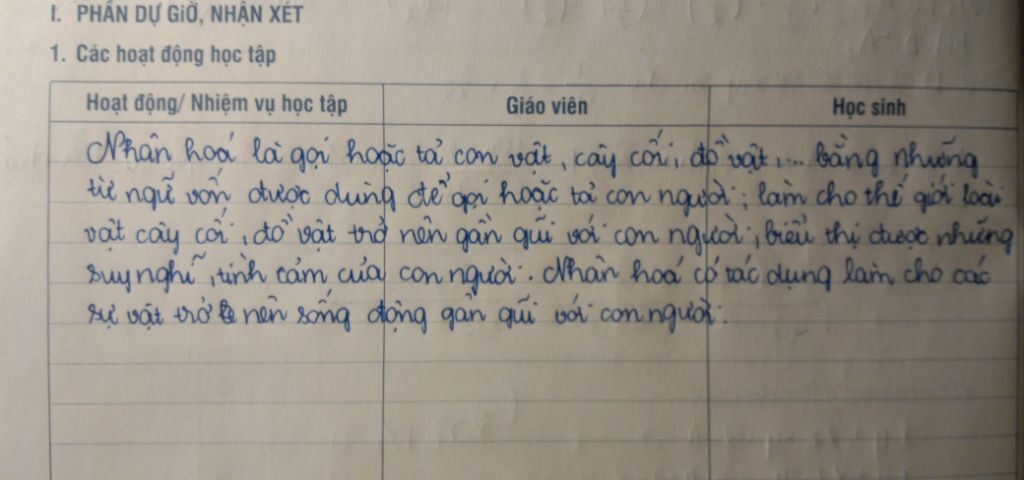 I. PHẦN DỰ GIỜ, NHẬN XÉT
1. Các hoạt động học tập
Hoạt động/ Nhiệm vụ học tập Giáo viên Học sinh
Nhân hoá là gọi hoặc tả con vật, cây cối, đồ vật,... bằng những
từ ngữ vốn được dùng để gọi hoặc tả con người; làm cho thế giới loài
vật cây cối, đồ vật trở nên gần gũi với con người, biểu thị được những
suy nghĩ, tình cảm của con người. Nhân hoá có tác dụng làm cho các
sự vật trở nên sống động gần gũi với con người.